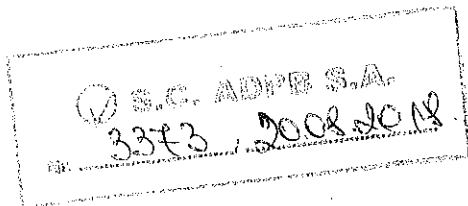 S.C. ADPB S.A.
Nr. 3373, 2008.2018